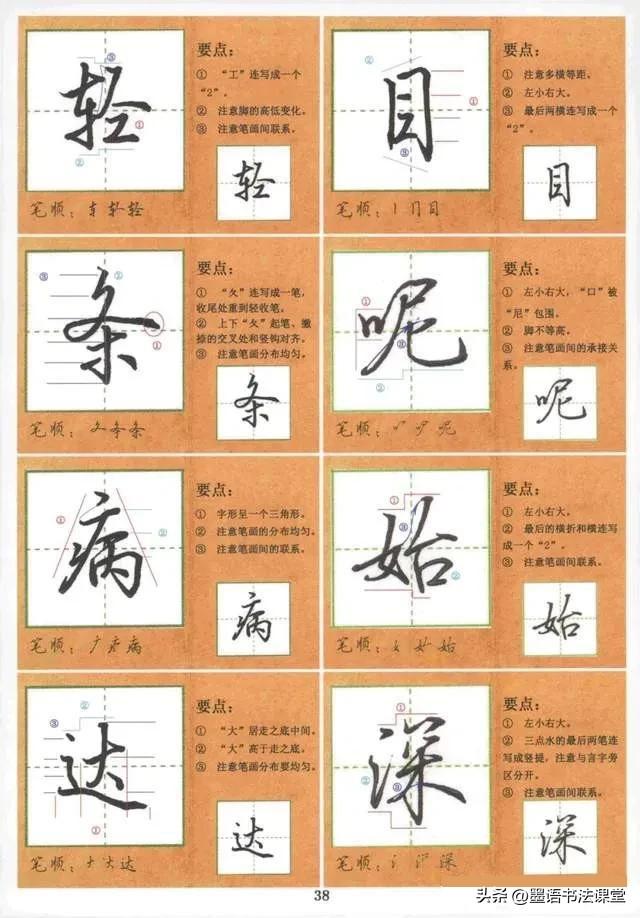 轻
要点：
① “工”连写成一个
“2”。
② 注意脚的高低变化。
③ 注意笔画间联系。
轻
笔顺：车 轻 轻
目
要点：
① 注意多横等距。
② 左小右大。
③ 最后两横连写成一个
“2”。
目
笔顺：丨 冂 目
条
要点：
① “夂”连写成一笔，
收尾处重到轻收笔。
② 上下“夂”起笔、撇
捺的交叉处和竖钩对齐。
③ 注意笔画分布均匀。
条
笔顺：夂 条 条
呢
要点：
① 左小右大，“口”被
“尼”包围。
② 脚不等高。
③ 注意笔画间的承接关
系。
呢
笔顺：呢
病
要点：
① 字形呈一个三角形。
② 注意笔画的分布均匀。
③ 注意笔画间的联系。
病
笔顺：疒 病
始
要点：
① 左小右大。
② 最后的横折和横连写
成一个“2”。
③ 注意笔画间联系。
始
笔顺：始
达
要点：
① “大”居走之底中间。
② “大”高于走之底。
③ 注意笔画分布要均匀。
达
笔顺：大 达 达
深
要点：
① 左小右大。
② 三点水的最后两笔连
写成竖提，注意与言字旁
区分开。
③ 注意笔画间联系。
深
笔顺：氵 深
38
头条 @墨语书法课堂